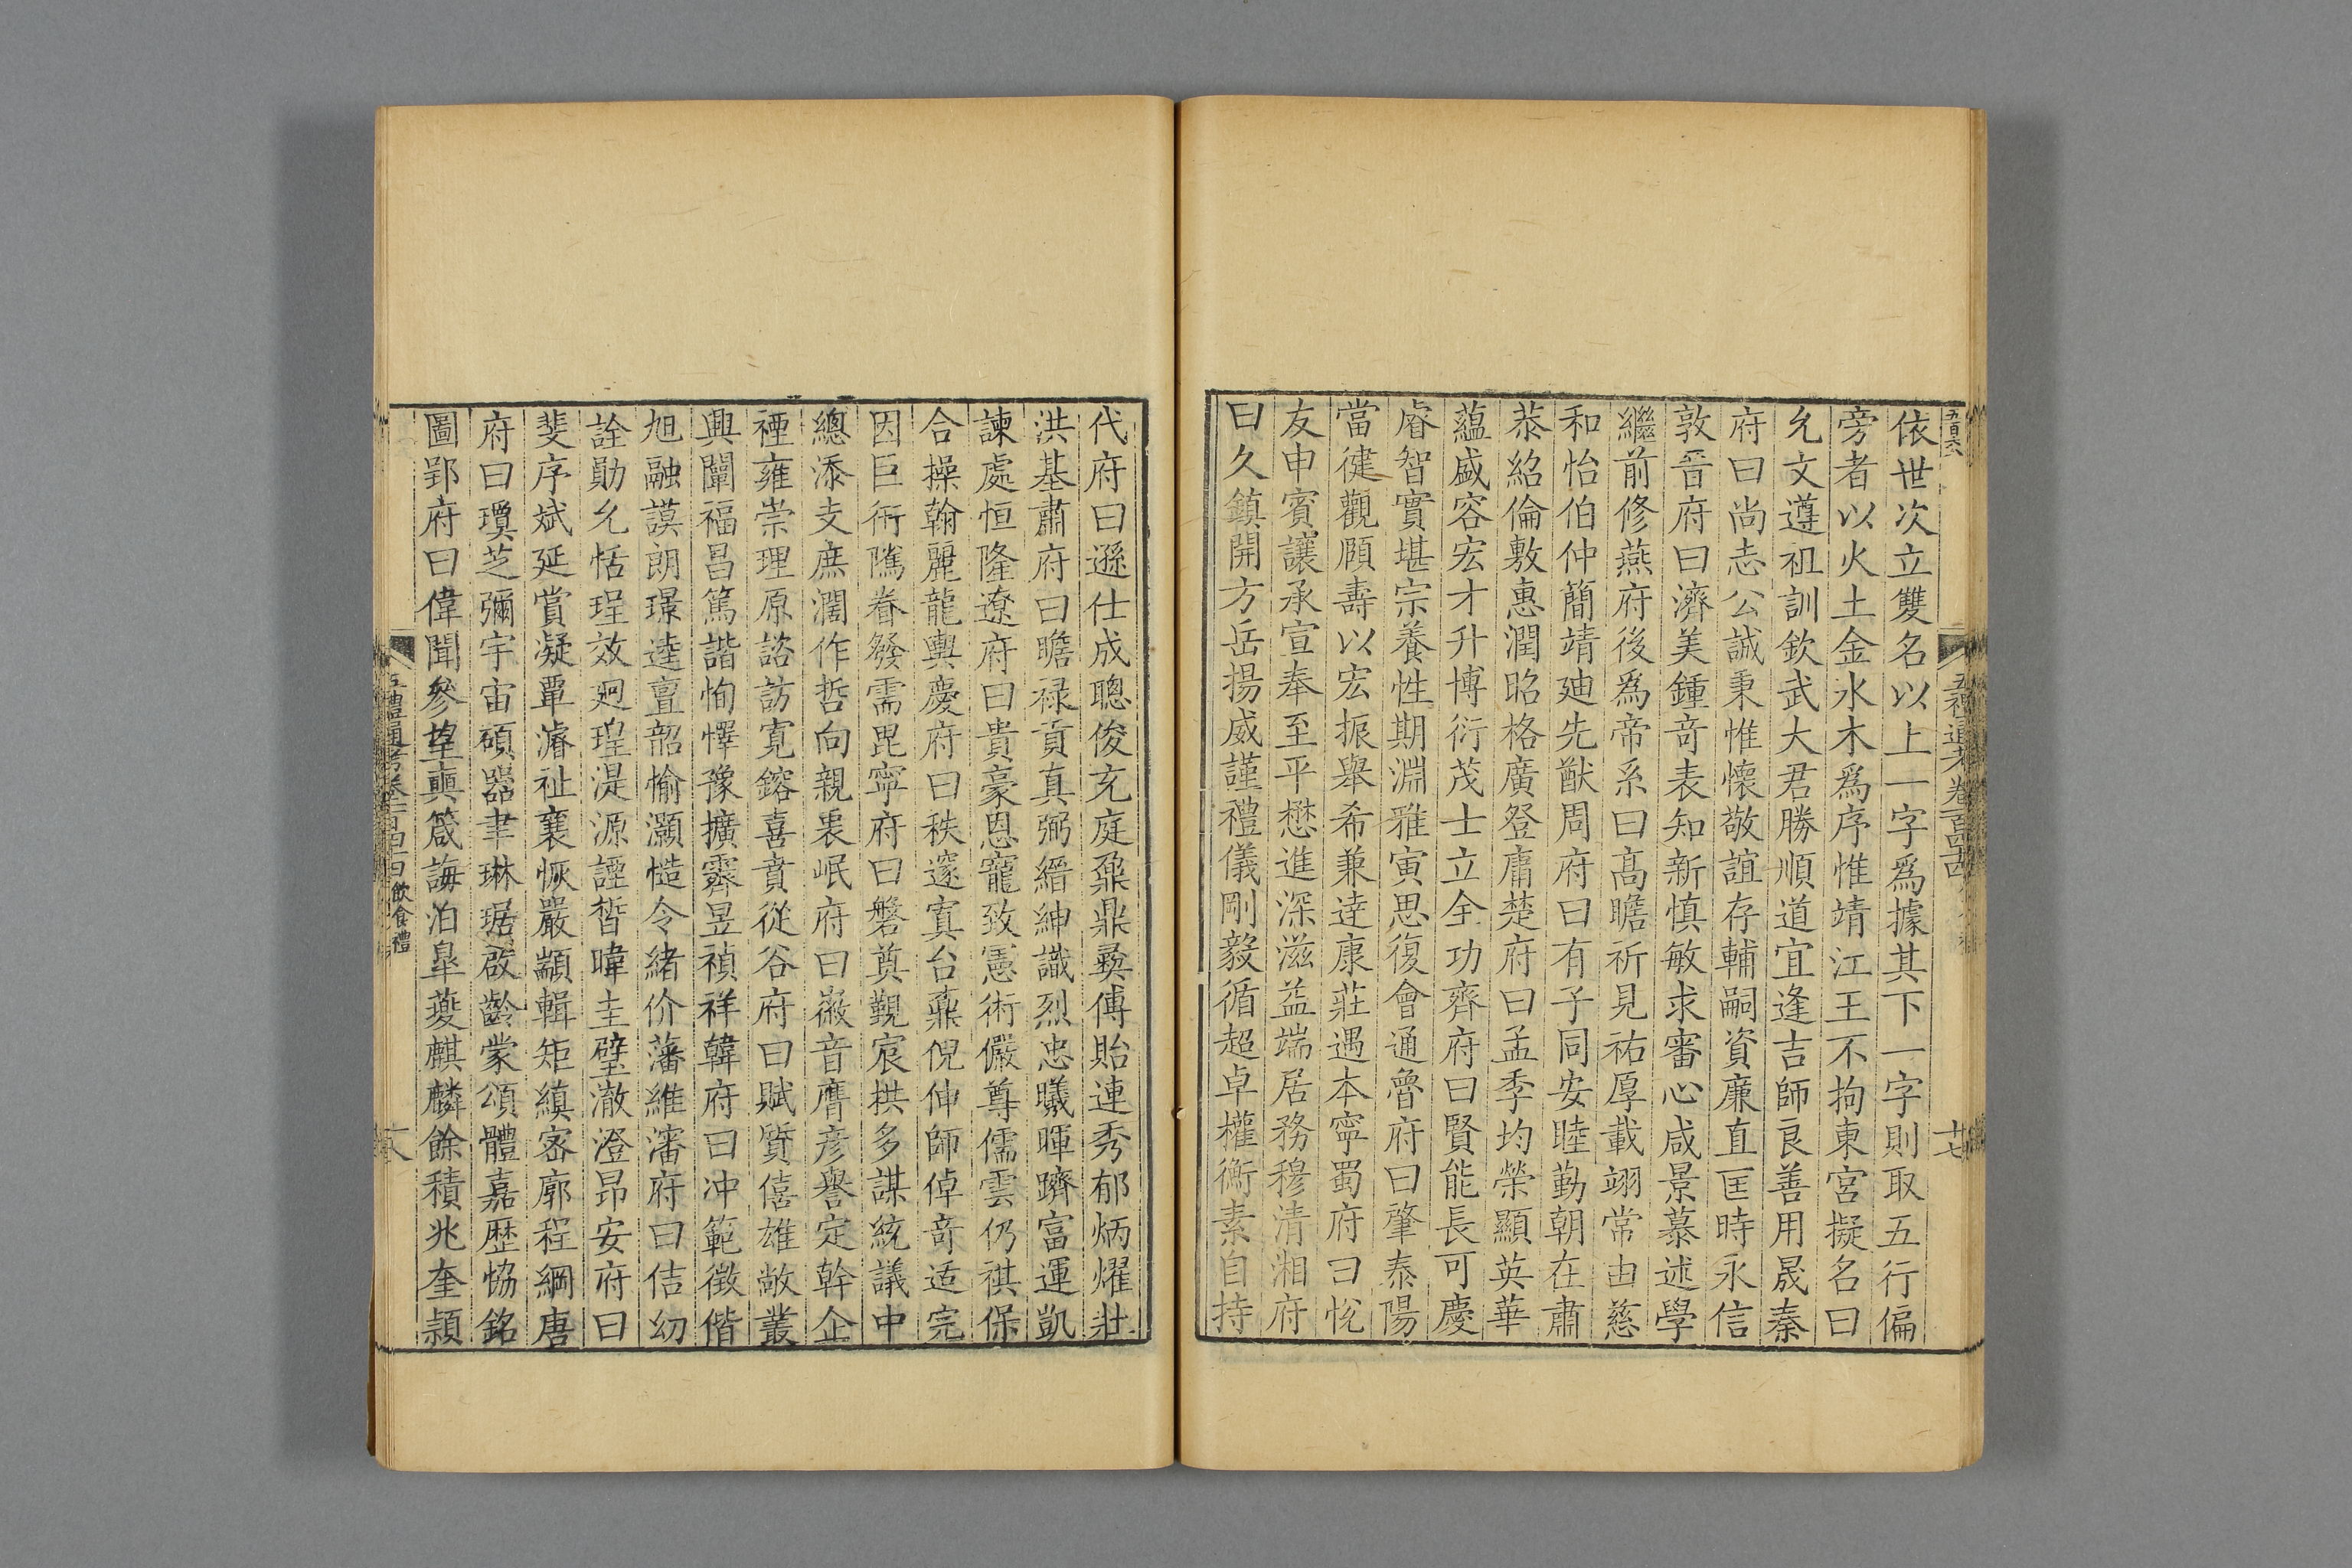 五百六
依世次立雙名以上一字爲據其下一字則取五行偏
旁者以火土金水木爲序惟靖江王不拘東宮擬名曰
允文遵祖訓欽武大君勝順道宜逢吉師良善用晟秦
府曰尚志公誠秉惟懷敬誼存輔嗣資廉直匡時永信
敦晉府曰濟美鍾竒表知新慎敏求審心咸景慕述學
繼前修燕府後爲帝系曰高瞻祈見祐厚載翊常由慈
和怡伯仲簡靖廸先猷周府曰有子同安睦勤朝在肅
恭紹倫敷惠潤昭格廣登庸楚府曰孟季均榮顯英華
蘊盛容宏才升博衍茂士立全功齊府曰賢能長可慶
睿智實堪宗養性期淵雅寅思復會通魯府曰肇泰陽
當健觀頤壽以宏振舉希兼達康莊遇本寧蜀府曰悅
友申賓讓承宣奉至平懋進深滋益端居務穆清湘府
曰久鎮開方岳揚威謹禮儀剛毅循超卓權衡素自持
代府曰遜仕成聰俊充庭鼐鼎彛傅貽連秀郁炳燿壯
洪基肅府曰瞻禄貢真弼縉紳識烈忠曦暉躋富運凱
諫處恒隆遼府曰貴豪恩寵致憲術儼尊儒雲仍祺保
合操翰麗龍輿慶府曰秩邃寘台鼒倪伸師倬竒适完
因巨衍隲眷發需毘寧府曰磐奠覲宸拱多謀統議中
總添支庶濶作哲向親裵岷府曰徽音膺彦譽定幹企
禋雍崇理原諮訪寛鎔喜賁從谷府曰賦質僖雄敞叢
興闡福昌篤諧恂懌豫擴霽昱禎祥韓府曰冲範徵偕
旭融謨朗璟逵亶韶愉灝慥令緒价藩維瀋府曰佶幼
詮勛允恬珵效迥瑝湜源諲晳暐圭璧澈澄昂安府曰
斐序斌延賞凝覃濬祉襄恢嚴顓輯矩縝宻廓程綱唐
府曰瓊芝彌宇宙碩器聿琳琚啟齡蒙頌體嘉歴協銘
圖郢府曰偉聞參望奭箴誨洎臯夔麒麟餘積兆奎頴